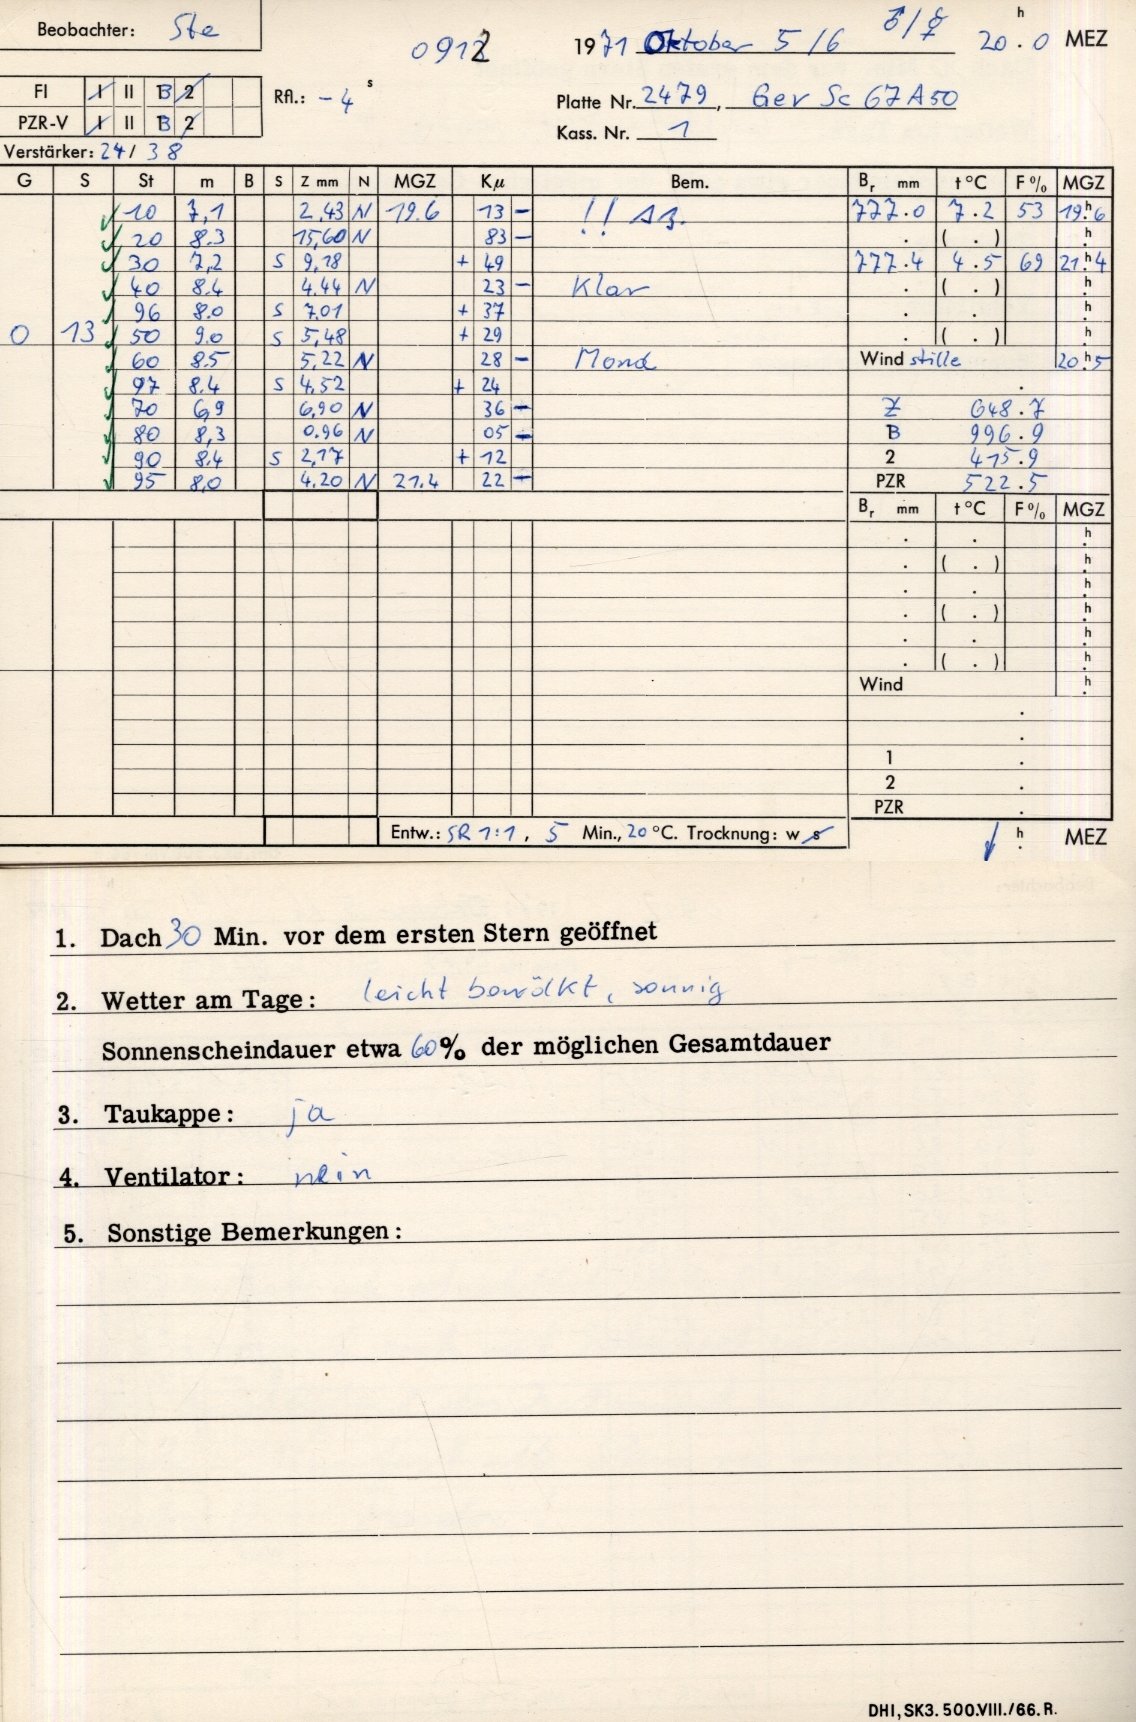 Beobachter: Ste
♂/☿
0912 1971 Oktober 5/6 20.0 h MEZ
FI I II B 2
Rfl.: -4 s
Platte Nr. 2479, Gev Sc 67A50
PZR-V I II B 2
Kass. Nr. 1
Verstärker: 24/38
G S St m B S Z mm N MGZ Kμ Bem. Br mm t °C F % MGZ
10 7,1 2,43 N 19.6 13 - !! 777.0 7.2 53 19.h6
20 8.3 15,60 N 83 - . ( . ) h
30 7,2 S 9,18 + 49 777.4 4.5 69 21.h4
40 8.4 4.44 N 23 - Klar . ( . ) h
96 8.0 S 7.01 + 37 . . h
0 13 50 9.0 S 5,48 + 29 . ( . ) h
60 8.5 5,22 N 28 - Mond Wind stille 20.h5
97 8.4 S 4.52 + 24 .
70 6,9 6,90 N 36 - Z 648.7
80 8,3 0.96 N 05 - B 996.9
90 8.4 S 2,17 + 12 2 415.9
95 8,0 4.20 N 21.4 22 - PZR 522.5
Br mm t °C F % MGZ
. . h
. ( . ) h
. . h
. ( . ) h
. . h
. ( . ) h
Wind h
.
.
1 .
2 .
PZR .
Entw.: SR 1:1, 5 Min., 20 °C. Trocknung: w s
h MEZ
1. Dach 30 Min. vor dem ersten Stern geöffnet
2. Wetter am Tage: leicht bewölkt, sonnig
Sonnenscheindauer etwa 60% der möglichen Gesamtdauer
3. Taukappe: ja
4. Ventilator: nein
5. Sonstige Bemerkungen:
DHI, SK3. 500.VIII./66. R.